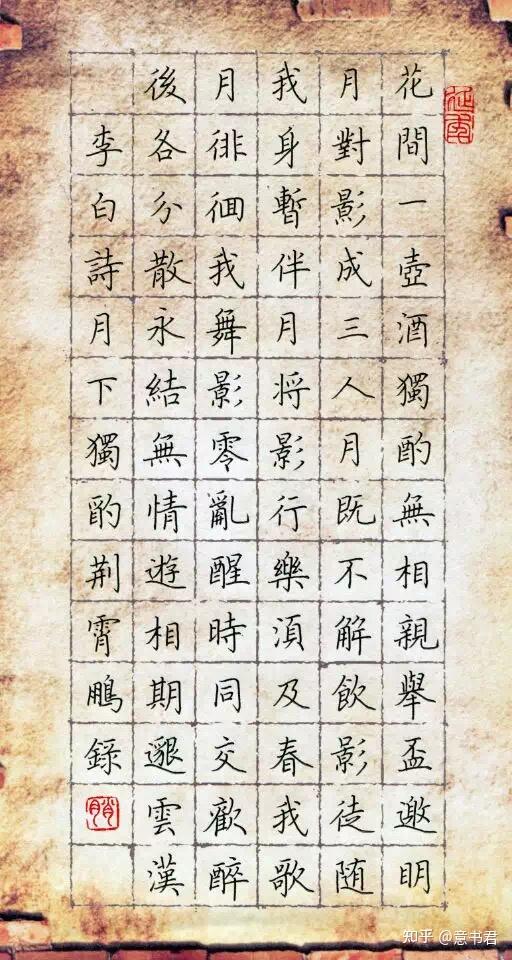 花間一壺酒獨酌無相親舉盃邀明
月對影成三人月既不解飲影徒随
我身暫伴月将影行樂湏及春我歌
月徘徊我舞影零亂醒時同交歡醉
後各分散永結無情遊相期邈雲漢
李白詩月下獨酌荆霄鵬錄
知乎 @意书君